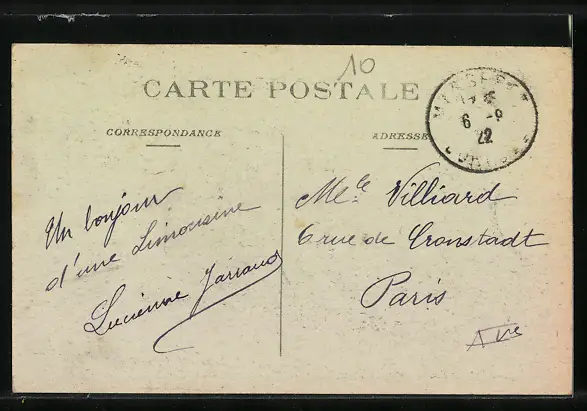 10
CARTE POSTALE
CORRESPONDANCE
ADRESSE
6 -9
22
CORREZE
Un bonjour
d'une Limousine
Lucienne Jarraud
Mlle Villiard
6 rue de Cronstadt
Paris